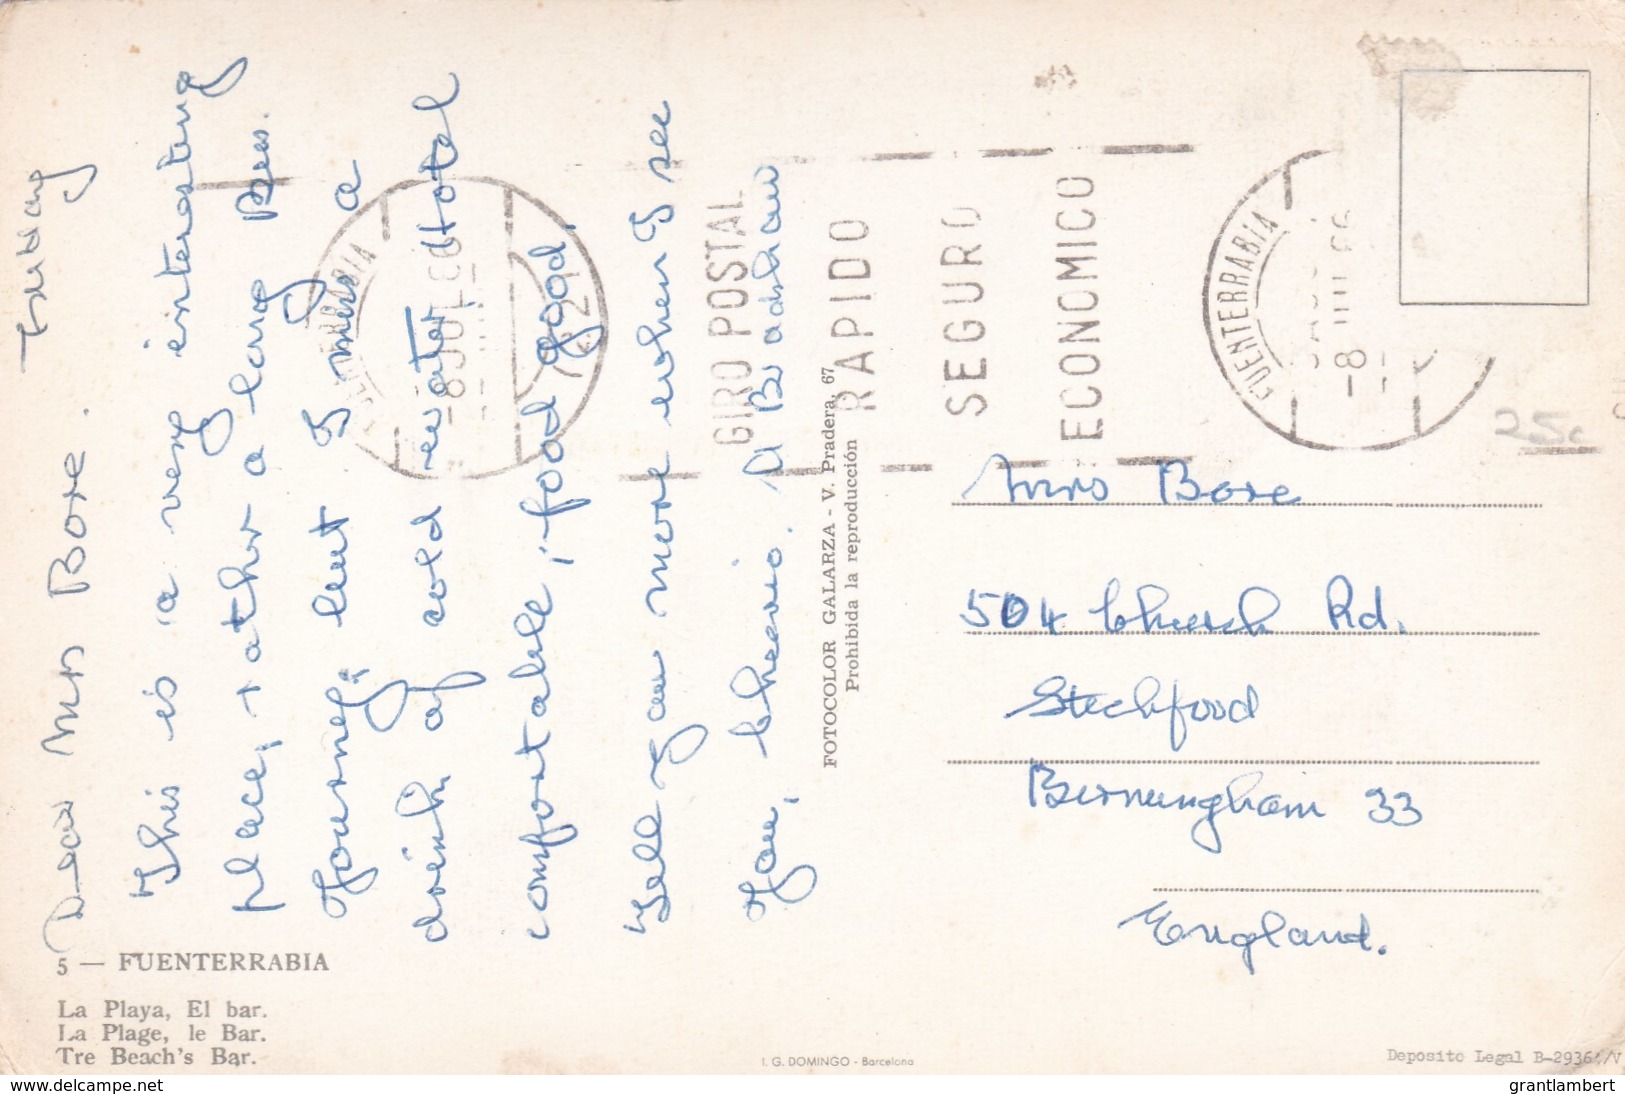 Friday
Dear Mrs Boxe.
This is a very interesting
place, + rather a long Bus.
Journey. but I miss a
drink of cold water. Hotel
comfortable, food good,
Tell you more when I see
You, Cheerio. A Bradshaw
Mrs Boxe
504 Church Rd.
Stechford
Birmingham 33
England.
FUENTERRABIA
-8 JUL 66
GIRO POSTAL
RAPIDO
SEGURO
ECONOMICO
FUENTERRABIA
-8
25c
FOTOCOLOR GALARZA - V. Pradera, 67
Prohibida la reproducción
5 — FUENTERRABIA
La Playa, El bar.
La Plage, le Bar.
Tre Beach's Bar.
I. G. DOMINGO - Barcelona
Deposito Legal B-2936
www.delcampe.net
grantlambert